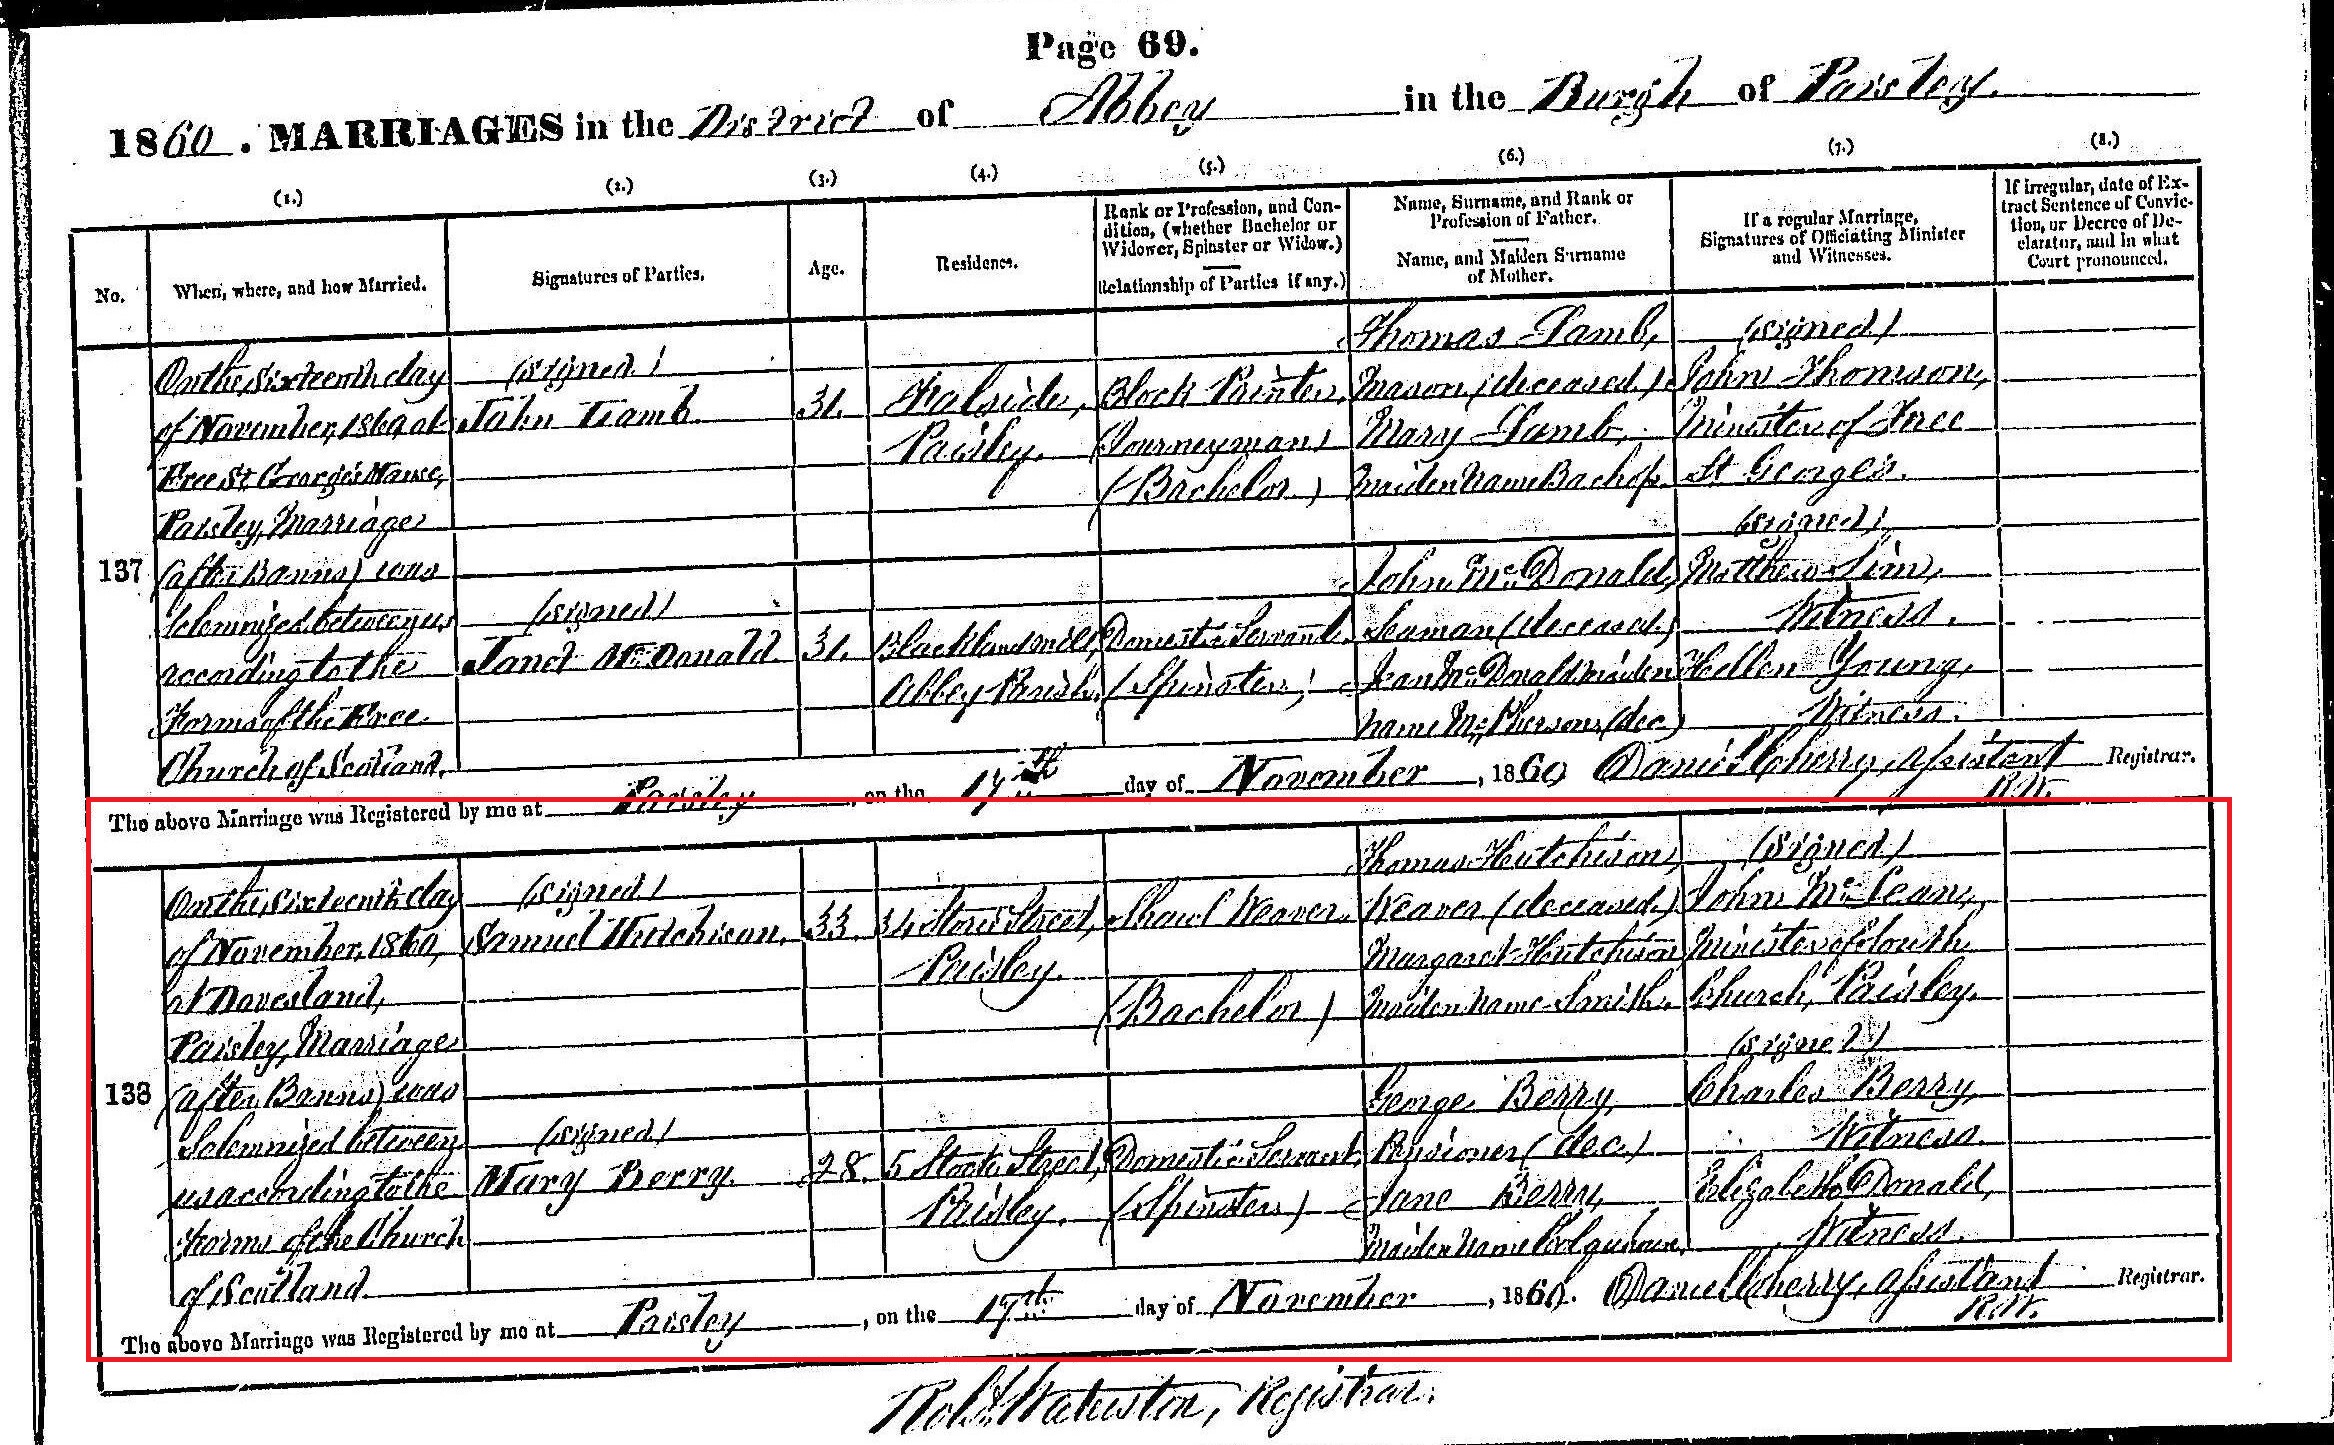 Page 69.
1860. MARRIAGES in the District of Abbey in the Burgh of Paisley.
(1.) (2.) (3.) (4.) (5.) (6.) (7.) (8.)
No.
When, where, and how Married.
Signatures of Parties.
Age.
Residence.
Rank or Profession, and Con-
dition, (whether Bachelor or
Widower, Spinster or Widow.)
Relationship of Parties if any.)
Name, Surname, and Rank or
Profession of Father.
Name, and Maiden Surname
of Mother.
If a regular Marriage,
Signatures of Officiating Minister
and Witnesses.
If irregular, date of Ex-
tract Sentence of Convic-
tion, or Decree of De-
clarator, and in what
Court pronounced.
137
On the sixteenth day
of November, 1860 at
Free St George's Manse,
Paisley, Marriage
(after Banns) was
solemnized between us
according to the
Forms of the Free
Church of Scotland.
(signed)
John Lamb
(signed)
Janet McDonald
31.
31.
Paisley.
Blackland mill,
Abbey Parish.
Block Printer,
(Journeyman)
(Bachelor)
Domestic Servant.
(Spinster)
Thomas Lamb,
Mason (deceased.)
Mary Lamb,
Maiden Name Bachop.
John McDonald,
Seaman (deceased.)
Jean McDonald maiden
name McPherson (dec.)
(signed)
John Thomson,
Minister of Free
St George's.
(signed)
Matthew Sim,
Witness.
Hellen Young,
Witness.
The above Marriage was Registered by me at Paisley, on the 17th day of November, 1860 Daniel Cherry, Assistant Registrar.
R.W.
138
On the sixteenth day
of November, 1860,
at Dovesland,
Paisley, Marriage
(after Banns) was
Solemnized between
us according to the
Forms of the Church
of Scotland.
(signed)
Samuel Hutchison.
(signed)
Mary Berry.
33.
28.
34 Storie Street,
Paisley.
5 Stock Street,
Paisley.
Shawl Weaver.
(Bachelor)
Domestic Servant,
(Spinster)
Thomas Hutchison,
Weaver (deceased.)
Margaret Hutchison
Maiden Name Smith.
George Berry,
Pensioner (dec.)
Jane Berry,
Maiden Name Colquhoun.
(signed)
John McLean,
Minister of South
Church, Paisley.
(signed)
Charles Berry,
Witness.
Elizabeth Donald,
Witness.
The above Marriage was Registered by me at Paisley, on the 17th day of November, 1860. Daniel Cherry, Assistant Registrar.
R.W.
Robt. Waterston, Registrar.